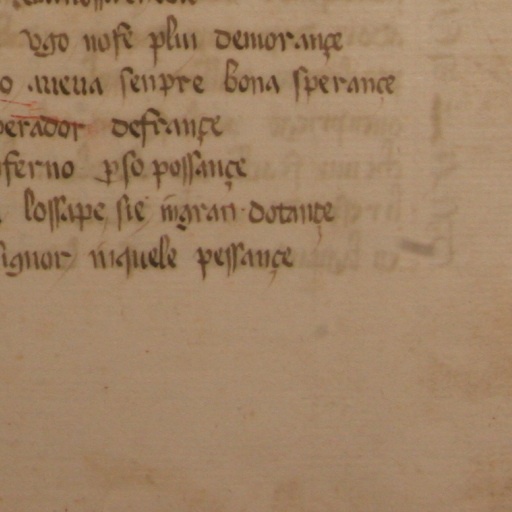 vgo no fe plui demorançe
o aueua senpre bona sperançe
perador defrançe
nferno p so possançe
lo ssape sie in gran dotançe
signor in quele pessançe